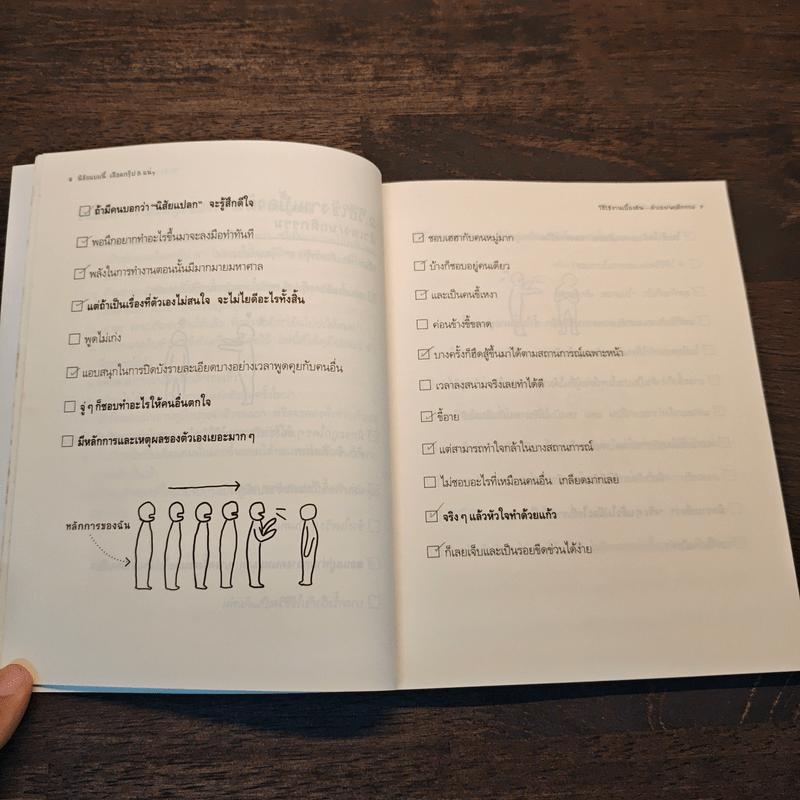 นิสัยแบบนี้ เลือดกรุ๊ป B แน่ๆ
ถ้ามีคนบอกว่า “นิสัยแปลก” จะรู้สึกดีใจ
พอนึกอยากทำอะไรขึ้นมาจะลงมือทำทันที
พลังในการทำงานตอนนั้นมีมากมายมหาศาล
แต่ถ้าเป็นเรื่องที่ตัวเองไม่สนใจ จะไม่ไยดีอะไรทั้งสิ้น
พูดไม่เก่ง
แอบสนุกในการปิดบังรายละเอียดบางอย่างเวลาพูดคุยกับคนอื่น
จู่ ๆ ก็ชอบทำอะไรให้คนอื่นตกใจ
มีหลักการและเหตุผลของตัวเองเยอะมาก ๆ
หลักการของฉัน
วิธีใช้งานเบื้องต้น 7
ชอบเฮฮากับคนหมู่มาก
บ้างก็ชอบอยู่คนเดียว
และเป็นคนขี้เหงา
ค่อนข้างขี้ขลาด
บางครั้งก็ฮึดสู้ขึ้นมาได้ตามสถานการณ์เฉพาะหน้า
เวลาลงสนามจริงเลยทำได้ดี
ขี้อาย
แต่สามารถทำใจกล้าในบางสถานการณ์
ไม่ชอบอะไรที่เหมือนคนอื่น เกลียดมากเลย
จริง ๆ แล้วหัวใจทำด้วยแก้ว
ก็เลยเจ็บและเป็นรอยขีดข่วนได้ง่าย